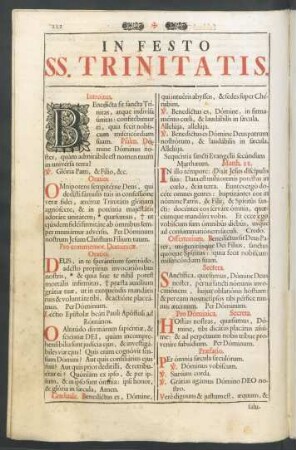 IN FESTO
SS. TRINITATIS.
Introitus.
Benedicta sit sancta Tri-
nitas, atque indivisa
unitas: confitebimur
ei, quia fecit nobis-
cum misericordiam
suam. Psalm. Dó-
mine Dóminus no-
ster, quàm admirabile est nomen tuum
in universa terra!
℣. Glória Patri, & Fílio, &c.
Oratio.
OMnipotens sempitérne Deus, qui
dedísti fámulis tuis in confessióne
veræ fídei, ætérnæ Trinitátis glóriam
agnóscere, & in poténtia majestátis
adoráre unitátem; quǽsumus, ut
ejúsdem fidei firmitáte, ab ómnibus sem-
per muniámur advérsis. Per Dóminum
nostrum Jesum Christum Fílium tuum.
Pro commemor. Dominicæ.
Oratio.
DEus, in te sperántium fortitúdo,
adésto propítius invocatiónibus
nostris, & quia sine te nihil potest
mortális infírmitas, præsta auxílium
grátiæ tuæ, ut in exequéndis mandátis
tuis & voluntáte tibi, & actióne placeá-
mus. Per Dóminum.
Léctio Epístolæ beáti Pauli Apóstoli ad
Romános.
O Altitúdo divitiárum sapiéntiæ, &
sciéntiæ DEI, quàm incompre-
hensibília sunt judícia ejus, & investigá-
biles viæ ejus! Quis enim cognóvit sen-
sum Dómini? Aut quis consiliárius ejus
fuit? Aut quis prior dedit illi, & retribué-
tur ei? Quóniam ex ipso, & per ip-
sum, & in ipso sunt ómnia: ipsi honor,
& glória in sǽcula, Amen.
Graduale. Benedíctus es, Dómine,
qui intuéris abyssos, & sedes super Ché-
rubim.
℣. Benedíctus es, Dómine, in firma-
ménto cœli, & laudábilis in sǽcula.
Allelúja, allelúja.
℣. Benedíctus Dómine Deus patrum
nostrórum, & laudábilis in sǽcula.
Allelúja.
Sequéntia sancti Evangélii secúndum
Matthæum.
IN illo témpore: Dixit Jesus discípulis
suis: Data est mihi omnis potéstas in
cœlo, & in terra. Eúntes ergo do-
céte omnes gentes, baptizántes eos in
nómine Patris, & Fílii, & Spíritûs san-
cti: docéntes eos serváre ómnia, quæ-
cúnque mandávi vobis. Et ecce ego
vobíscum sum ómnibus diébus, usque
ad consummatiónem sǽculi. Credo.
Offertorium. Benedíctus sit Deus Pa-
ter, unigenitúsque Dei Fílius, sanctus
quoque Spíritus: quia fecit nobíscum
misericórdiam suam.
Secreta.
SAnctífica, quǽsumus, Dómine Deus
noster, per tui sancti nóminis invo-
catiónem,
& per eam nosmetípsos tibi pérfice mu-
nus ætérnum. Per Dóminum.
Pro Dominica. Secreta.
HÓstias nostras, quǽsumus, Dó-
mine, tibi dicátas placátus assú-
me: & ad perpétuum nobis tríbue pro-
veníre subsídium. Per Dóminum.
Præfatio.
PEr ómnia sǽcula sæculórum.
℣. Dóminus vobíscum.
℣. Sursum corda.
℣. Grátias agámus Dómino DEO no-
stro.
Verè dignum & justum est, æquum, &
salu-